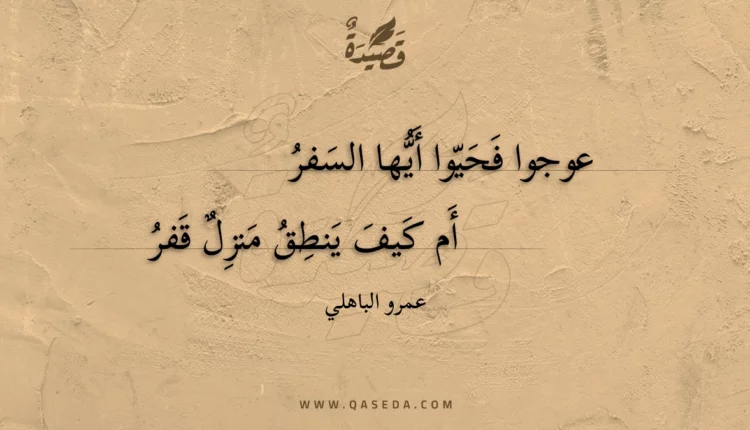 قَصِيْدَةٌ
عوجوا فَحَيّوا أَيُّها السَفرُ
أَم كَيفَ يَنطِقُ مَنزِلٌ قَفرُ
عمرو الباهلي
WWW.QASEDA.COM